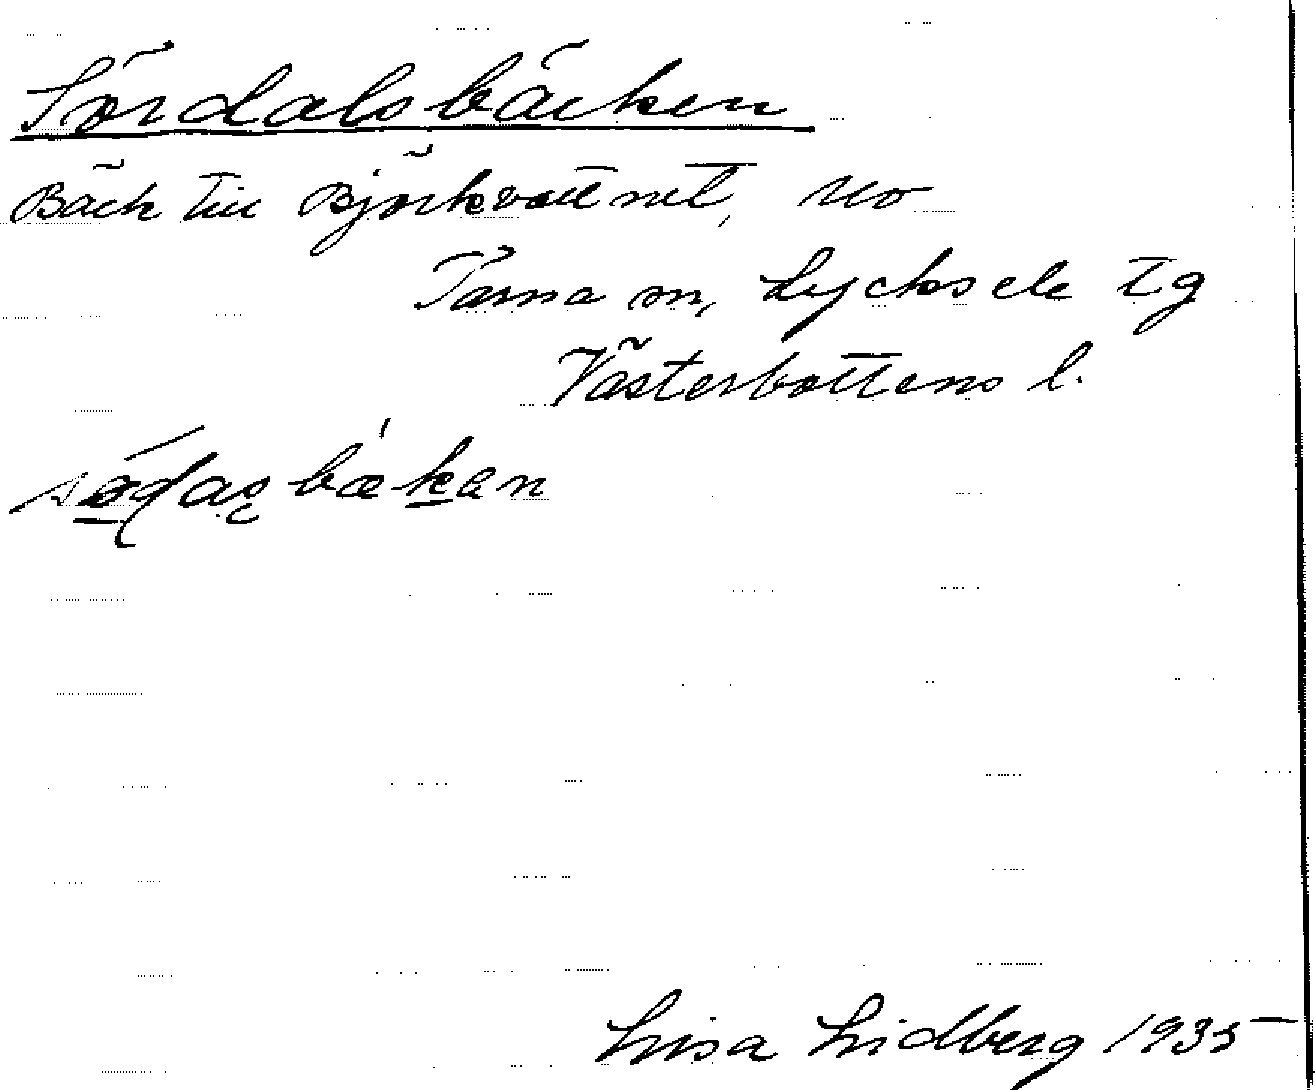 Sördalsbäcken
Bäck till Björkvattnet, no
Tärna sn, Lycksele tg
Västerbottens l.
Lisa Lidberg 1935